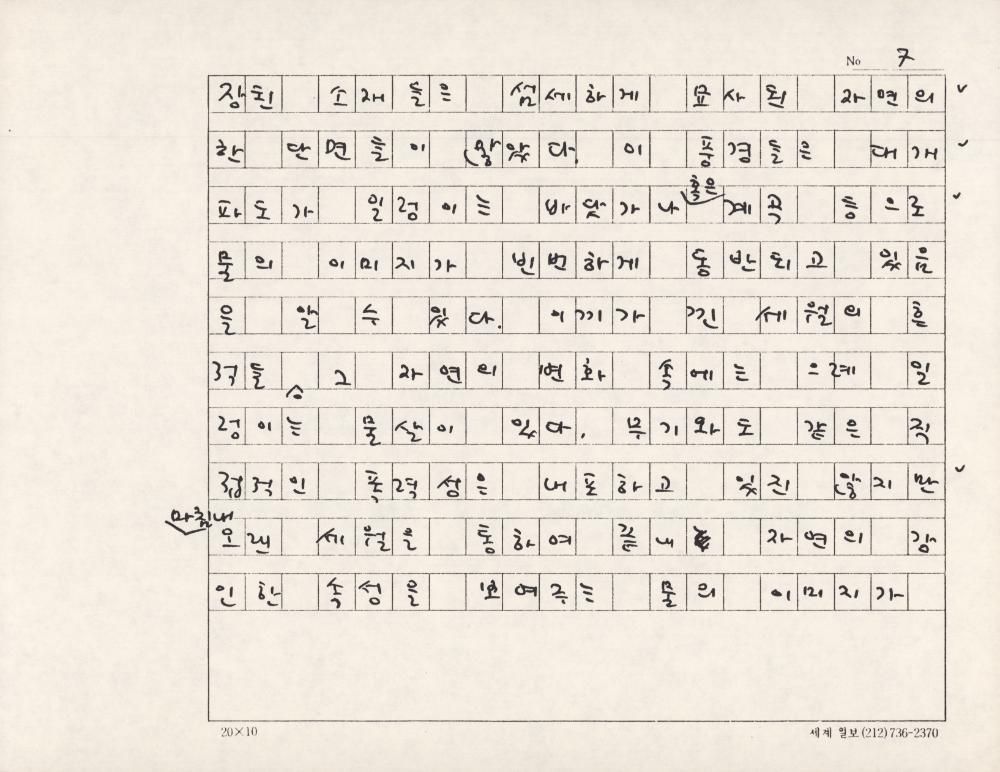 No 7
장된 소재들은 섬세하게 묘사된 자연의
한 단면들이 많았다. 이 풍경들은 대개
혹은
파도가 일렁이는 바닷가나 계곡 등으로
물의 이미지가 빈번하게 동반되고 있음
을 알 수 있다. 이끼가 낀 세월의 흔
적들, 그 자연의 변화 속에는 으레 일
렁이는 물살이 있다. 무기와도 같은 직
접적인 폭력성은 내포하고 있진 않지만
마침내
오랜 세월을 통하여 끝내 자연의 강
인한 속성을 보여주는 물의 이미지가
20×10
세계일보 (212) 736-2370